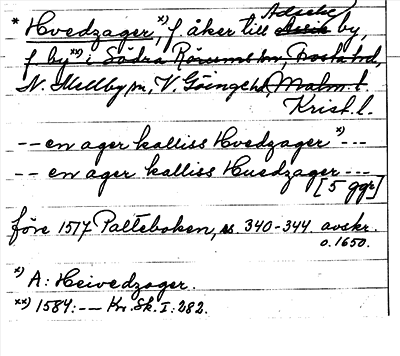 * Hvedzager, x) f åker till Adseke by,
f by xx) i Södra Rörums sn, Frosta hd,
N. Mellby sn, V. Göinge hd, Malm. l.
Krist. l.
-- en ager kalliss Hvedzager x) ---
-- en ager kalliss Huedzager ---
[5 ggr]
före 1517 Palteboken, s. 340-344. avskr.
o. 1650.
x) A: Heivedzager.
xx) 1584: -- Kr. Sk. I: 282.